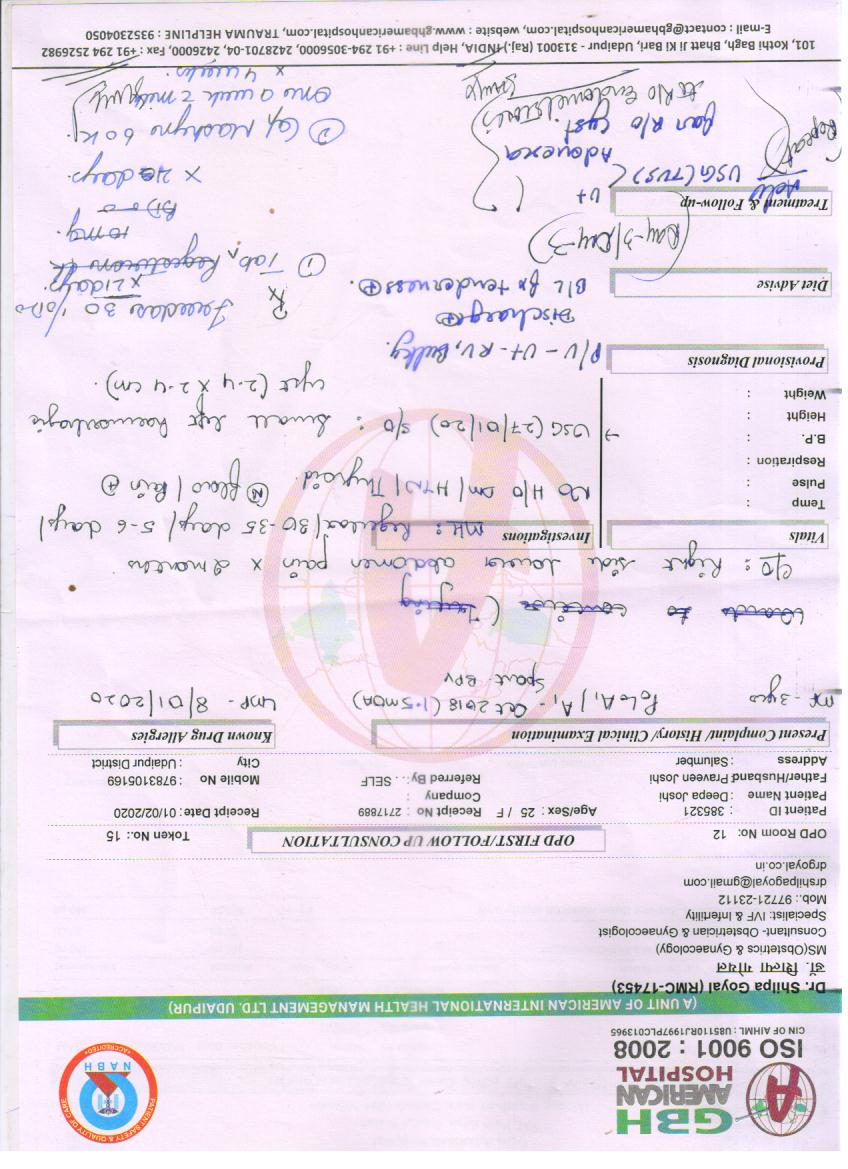 GBH
AMERICAN
HOSPITAL
ISO 9001 : 2008
CIN OF AIHML : U85110RJ1997PLC013965
PATIENT SAFETY & QUALITY OF CARE
NABH
•ACCREDITED•
(A UNIT OF AMERICAN INTERNATIONAL HEALTH MANAGEMENT LTD. UDAIPUR)
Dr. Shilpa Goyal (RMC-17453)
डॉ. शिल्पा गोयल
MS(Obstetrics & Gynaecology)
Consultant- Obstetrician & Gynaecologist
Specialist: IVF & Infertility
Mob.: 97721-23112
drshilpagoyal@gmail.com
drgoyal.co.in
OPD Room No: 12
OPD FIRST/FOLLOW UP CONSULTATION
Token No.: 15
Patient ID : 385321
Age/Sex: 25 / F
Receipt No : 2717889
Receipt Date: 01/02/2020
Patient Name : Deepa Joshi
Company :
Father/Husband Praveen Joshi
Referred By: . . SELF
Mobile No : 9783105169
Address : Salumbar
City : Udaipur District
Present Complaint/ History/ Clinical Examination
Known Drug Allergies
MF - 3yrs
P0L0A1 / A1 - Oct 2018 (1.5 MOA)
LMP - 8/01/2020
Spont.
Wants to
C/O : Right side lower abdomen pain x 2 months
Vitals
Investigations
MH : Regular/30-35 days/ 5-6 days/
Temp :
Pulse :
NO H/O DM/HTN/Thyroid.
(N) flow/Pain (+)
Respiration :
B.P. :
→ USG (27/01/20) S/O : Small left haemorrhagic
Height :
cyst (2.4 x 2.4 cm).
Weight :
Provisional Diagnosis
P/V - Ut - RV, Bulky.
Discharge (+)
B/L fx tenderness (+).
Diet Advise
(Day-2/Day-3)
Rx
x 21 days
① Tab.
10mg
BD
x days.
Treatment & Follow-up
Adv
USG (TVS)
Ut
Adnexa
Repeat
for R/O Cyst
R/O Endometriosis
②
60 K
Once a week
x 4 weeks
101, Kothi Bagh, Bhatt Ji Ki Bari, Udaipur - 313001 (Raj.) INDIA, Help Line : +91 294-3056000, 2428701-04, 2426000, Fax : +91 294 2526982
E-mail : contact@gbhamericanhospital.com, website : www.gbhamericanhospital.com, TRAUMA HELPLINE : 9352304050